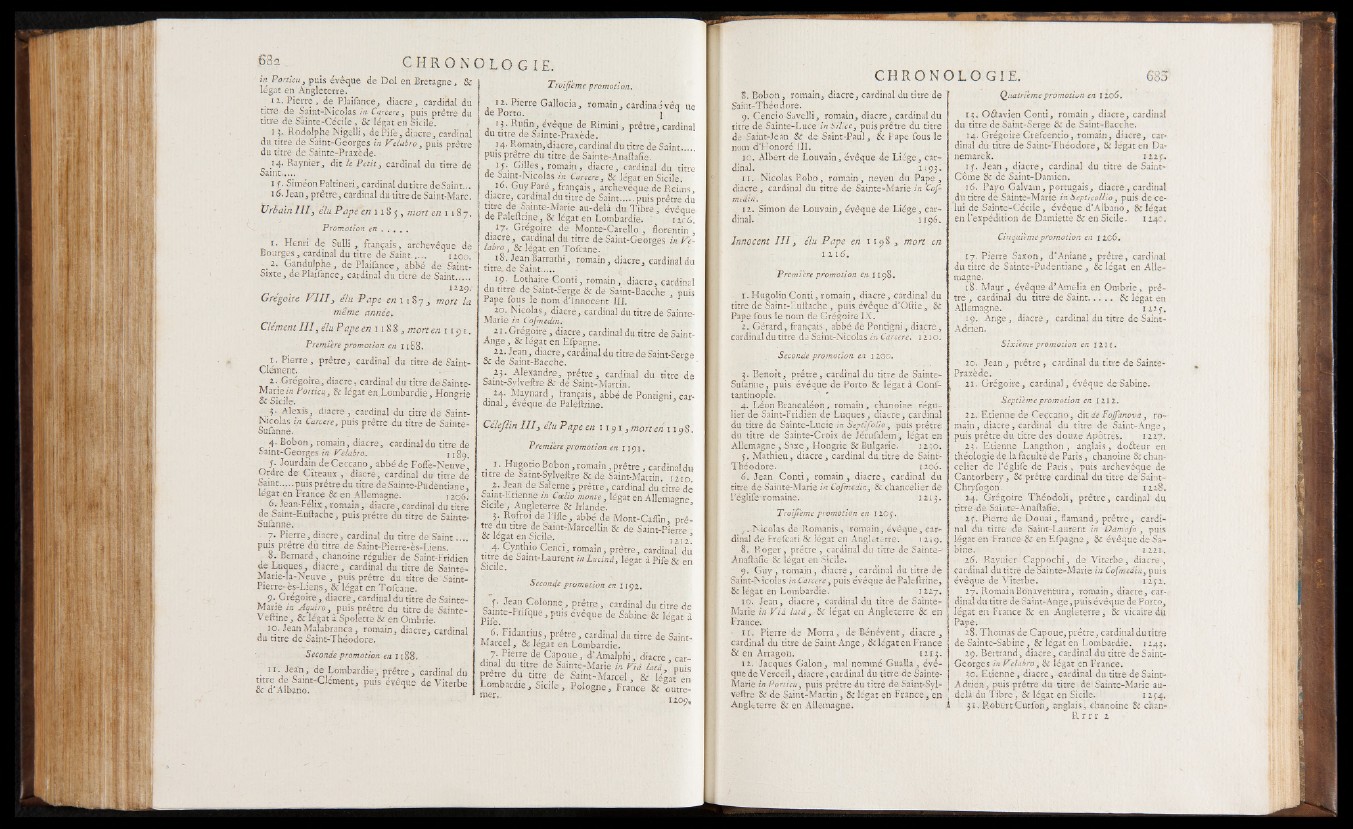 682 CHRONOLOGIE.
in Porticu, puis évêque de Dol en Bretagne, &
légat en Angleterre.
12. Pierre, de Plaisance, diacre, cardinal du
titre de Saint-Nicolas in Carcere, puis prêtre du
titre de Sainte-Cécile, & légat en Sicile.
13. Rodolphe Nigelli, de Pise, diacre, cardinal
du titre de Saint-Georges in Velabro, puis prêtre
du titre de Sainte-Praxède.
14. Raynier, dit le Petit, cardinal du titre de
Saint.....
15. Siméon Paltineri, cardinal du titre de Saint...
16. Jean, prêtre, cardinal du titre de Saint-Marc.
Urbain III, élu Pape en 1185, mort en 1187.
Promotion en .....
1. Henri de Sulli, français, archevêque de
Bourges, cardinal du titre de Saint..... 1200.
2. Gandulphe, de Plaisance, abbé de Saint-
Sixte, de Plaisance, cardinal du titre de Saint.....
1229.
Grégoire VIII, élu Pape en 1187, mort la
même année.
Clément III, élu Pape en 1188, mort en 1191.
Première promotion en 1188.
1. Pierre, prêtre, cardinal du titre de Saint-
Clément.
2. Grégoire, diacre, cardinal du titre de Sainte-
Marie in Porticu, & légat en Lombardie, Hongrie
& Sicile.
3. Alexis, diacre, cardinal du titre de Saint-
Nicolas in Carcere, puis prêtre du titre de Sainte-
Susanne.
4. Bobon, romain, diacre, cardinal du titre de
Saint-Georges in Velabro. 1189.
5. Jourdain de Ceccano, abbé de Fosse-Neuve,
Ordre de Citeaux, diacre, cardinal du titre de
Saint..... puis prêtre du titre de Sainte-Pudentiane,
légat en France & en Allemagne. 1206.
6. Jean-Félix, romain, diacre, cardinal du titre
de Saint-Eustache, puis prêtre du titre de Sainte-
Susanne.
7. Pierre, diacre, cardinal du titre de Saint....
puis prêtre du titre de Saint-Pierre-ès-Liens.
8. Bernard, chanoine régulier de Saint-Fridien
de Luques, diacre, cardinal du titre de Sainte-
Marie-la-Neuve, puis prêtre du titre de Saint-
Pierre-ès-Liens, & légat en Toscane.
9. Grégoire, diacre, cardinal du titre de Sainte-
Marie in Aquiro, puis prêtre du titre de Sainte-
Vestine, & légat à Spolette & en Ombrie.
10. Jean Malabranca, romain, diacre, cardinal
du titre de Saint-Théodore.
Seconde promotion en 1188.
11. Jean, de Lombardie, prêtre, cardinal du
titre de Saint-Clément, puis évêque de Viterbe
& d'Albano.
Troisième promotion.
12. Pierre Gallocia, romain, cardinal évêque
de Porto.
13. Rufin, évêque de Rimini, prêtre, cardinal
du titre de Sainte-Praxède.
14. Romain, diacre, cardinal du titre de Saint.....
puis prêtre du titre de Sainte-Anastasie.
15. Gilles, romain, diacre, cardinal du titre
de Saint-Nicolas in Carcere, & légat en Sicile.
16. Guy Paré, français, archevêque de Reims,
diacre, cardinal du titre de Saint..... puis prêtre du
titre de Sainte-Marie au-delà du Tibre, évêque
de Palestrine, & légat en Lombardie. 1206.
17. Grégoire de Monte-Carello, florentin,
diacre, cardinal du titre de Saint-Georges in Ve-
labro, & légat en Toscane.
18. Jean Barrathi, romain, diacre, cardinal du
titre de Saint.....
19. Lothaire Conti, romain, diacre, cardinal
du titre de Saint-Serge & de Saint-Bacche, puis
Pape sous le nom d'Innocent III.
20. Nicolas, diacre, cardinal du titre de Sainte-
Marie in Cosmedin.
21. Grégoire, diacre, cardinal du titre de Saint-
Ange, & légat en Espagne.
22. Jean, diacre, cardinal du titre de Saint-Serge
& de Saint-Bacche.
23. Alexandre, prêtre, cardinal du titre de
Saint-Sylvestre & de Saint-Martin.
24. Maynard, français, abbé de Pontigni, car-
dinal, évêque de Palestrine.
Célestin III, élu Pape en 1191, mort en 1198.
Première promotion en 1191.
1. Hugotio Bobon, romain, prêtre, cardinal du
titre de Saint-Sylvestre & de Saint-Martin. 1210.
2. Jean de Salerne, prêtre, cardinal du titre de
Saint-Etienne in Cœlio monte, légat en Allemagne,
Sicile, Angleterre & Irlande.
3. Rofroi de l'Isle, abbé de Mont-Cassin, prê-
tre du titre de Saint-Marcellin & de Saint-Pierre,
& légat en Sicile. 1212.
4. Cynthio Cenci, romain, prêtre, cardinal du
titre de Saint-Laurent in Lucinâ, légat à Pise & en
Sicile.
Seconde promotion en 1192.
5. Jean Colonne, prêtre, cardinal du titre de
Sainte-Prisque, puis évêque de Sabine & légat à
Pise.
6. Fidantius, prêtre, cardinal du titre de Saint-
Marcel, & légat en Lombardie.
7. Pierre de Capoue, d'Amalphi, diacre, car-
dinal du titre de Sainte-Marie in Viâ latâ, puis
prêtre du titre de Saint-Marcel, & légat en
Lombardie, Sicile, Pologne, France & outre-
mer. 1209.
CHRONOLOGIE. 683
8. Bobon, romain, diacre, cardinal du titre de
Saint-Théodore.
9. Cencio Savelli, romain, diacre, cardinal du
titre de Sainte-Luce in Silice, puis prêtre du titre
de Saint-Jean & de Saint-Paul, & Pape sous le
nom d'Honoré III.
10. Albert de Louvain, évêque de Liége, car-
dinal. 1193.
11. Nicolas Bobo, romain, neveu du Pape,
diacre, cardinal du titre de Sainte-Marie in Cos-
medin.
12. Simon de Louvain, évêque de Liége, car-
dinal. 1196.
Innocent III, élu Pape en 1198, mort en
1216.
Première promotion en 1198.
1. Hugolin Conti, romain, diacre, cardinal du
titre de Saint-Eustache, puis évêque d'Ostie, &
Pape sous le nom de Grégoire IX.
2. Gérard, français, abbé de Pontigni, diacre,
cardinal du titre de Saint-Nicolas in Carcere. 1210.
Seconde promotion en 1200.
3. Benoît, prêtre, cardinal du titre de Sainte-
Susanne, puis évêque de Porto & légat à Cons-
tantinople.
4. Léon Brancaléon, romain, chanoine régu-
lier de Saint-Fridien de Luques, diacre, cardinal
du titre de Sainte-Lucie in Septisolio, puis prêtre
du titre de Sainte-Croix de Jérusalem, légat en
Allemagne, Saxe, Hongrie & Bulgarie. 1230.
5. Mathieu, diacre, cardinal du titre de Saint-
Théodore. 1206.
6. Jean Conti, romain, diacre, cardinal du
titre de Sainte-Marie in Cosmedin, & chancelier de
l'église romaine. 1213.
Troisième promotion en 1205.
7. Nicolas de Romanis, romain, évêque, car-
dinal de Frescati & légat en Angleterre. 1219.
8. Roger, prêtre, cardinal du titre de Sainte-
Anastasie & légat en Sicile.
9. Guy, romain, diacre, cardinal du titre de
Saint-Nicolas in Carcere, puis évêque de Palestrine,
& légat en Lombardie. 1227.
10. Jean, diacre, cardinal du titre de Sainte-
Marie in Viâ latâ, & légat en Angleterre & en
France.
11. Pierre de Morra, de Bénévent, diacre,
cardinal du titre de Saint Ange, & légat en France
& en Arragon. 1213.
12. Jacques Galon, mal nommé Gualla, évê-
que de Verceil, diacre, cardinal du titre de Sainte-
Marie in Porticu, puis prêtre du titre de Saint-Syl-
vestre & de Saint-Martin, & légat en France, en
Angleterre & en Allemagne.
Quatrième promotion en 1206.
13. Octavien Conti, romain, diacre, cardinal
du titre de Saint-Serge & de Saint-Bacche.
14. Grégoire Crescentio, romain, diacre, car-
dinal du titre de Saint-Théodore, & légat en Da-
nemarck. 1225.
15. Jean, diacre, cardinal du titre de Saint-
Côme & de Saint-Damien.
16. Payo Galvam, portugais, diacre, cardinal
du titre de Sainte-Marie in Septicollio, puis de ce-
lui de Sainte-Cécile, évêque d'Albano, & légat
en l'expédition de Damiette & en Sicile. 1240.
Cinquième promotion en 1206.
17. Pierre Saxon, d'Aniane, prêtre, cardinal
du titre de Sainte-Pudentiane, & légat en Alle-
magne.
18. Maur, évêque d'Amelia en Ombrie, prê-
tre, cardinal du titre de Saint..... & légat en
Allemagne. 1225.
19. Ange, diacre, cardinal du titre de Saint-
Adrien.
Sixième promotion en 1211.
20. Jean, prêtre, cardinal du titre de Sainte-
Praxède.
21. Grégoire, cardinal, évêque de Sabine.
Septième promotion en 1212.
22. Etienne de Ceccano, dit de Fossanova, ro-
main, diacre, cardinal du titre de Saint-Ange,
puis prêtre du titre des douze Apôtres. 1227.
23. Etienne Langthon, anglais, docteur en
théologie de la faculté de Paris, chanoine & chan-
celier de l'église de Paris, puis archevêque de
Cantorbery, & prêtre cardinal du titre de Saint-
Chrysogon. 1228.
24. Grégoire Théodoli, prêtre, cardinal du
titre de Sainte-Anastasie.
25. Pierre de Douai, flamand, prêtre, cardi-
nal du titre de Saint-Laurent in Damaso, puis
légat en France & en Espagne, & évêque de Sa-
bine. 1221.
26. Raynier Cappochi, de Viterbe, diacre,
cardinal du titre de Sainte-Marie in Cosmedin, puis
évêque de Viterbe. 1252.
27. Romain Bonaventura, romain, diacre, car-
dinal du titre de Saint-Ange, puis évêque de Porto,
légat en France & en Angleterre, & vicaire du
Pape.
28. Thomas de Capoue, prêtre, cardinal du titre
de Sainte-Sabine, & légat en Lombardie. 1243.
29. Bertrand, diacre, cardinal du titre de Saint-
Georges in Velabro, & légat en France.
30. Etienne, diacre, cardinal du titre de Saint-
Adrien, puis prêtre du titre de Sainte-Marie au-
delà du Tibre, & légat en Sicile. 1254.
31. Robert Curson, anglais, chanoine & chan-
Rrrr 2